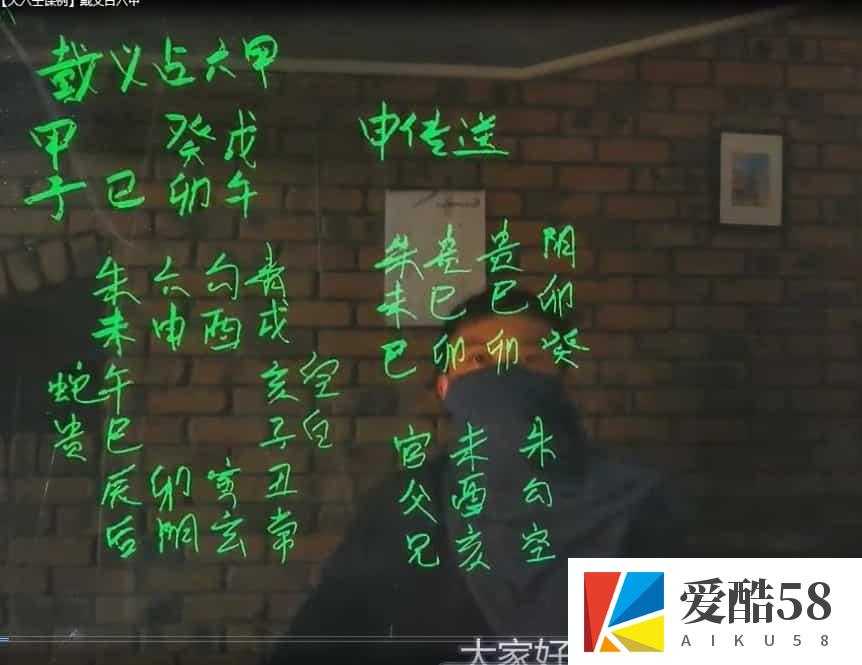 戴义占六甲
甲 癸戌
子巳卯午
申传送
朱六勾青
未申酉戌
蛇午 亥空
贵巳 子白
辰卯寅丑
后阴玄常
朱贵贵阴
未巳巳卯
巳卯卯癸
官未朱
父酉勾
兄亥空
大家好
爱酷58
AIKU58